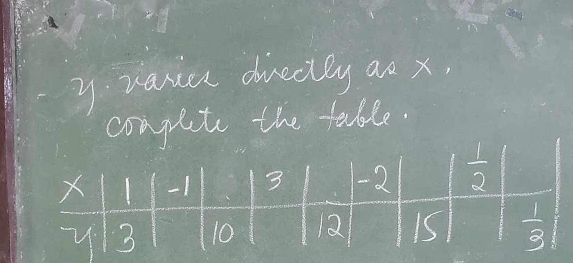 y varies directly as x.
complete the table.
x | 1 | -1 | | 3 | | -2 | | 1/2 |
y | 3 | | 10 | | 12 | | 15 | | 1/3